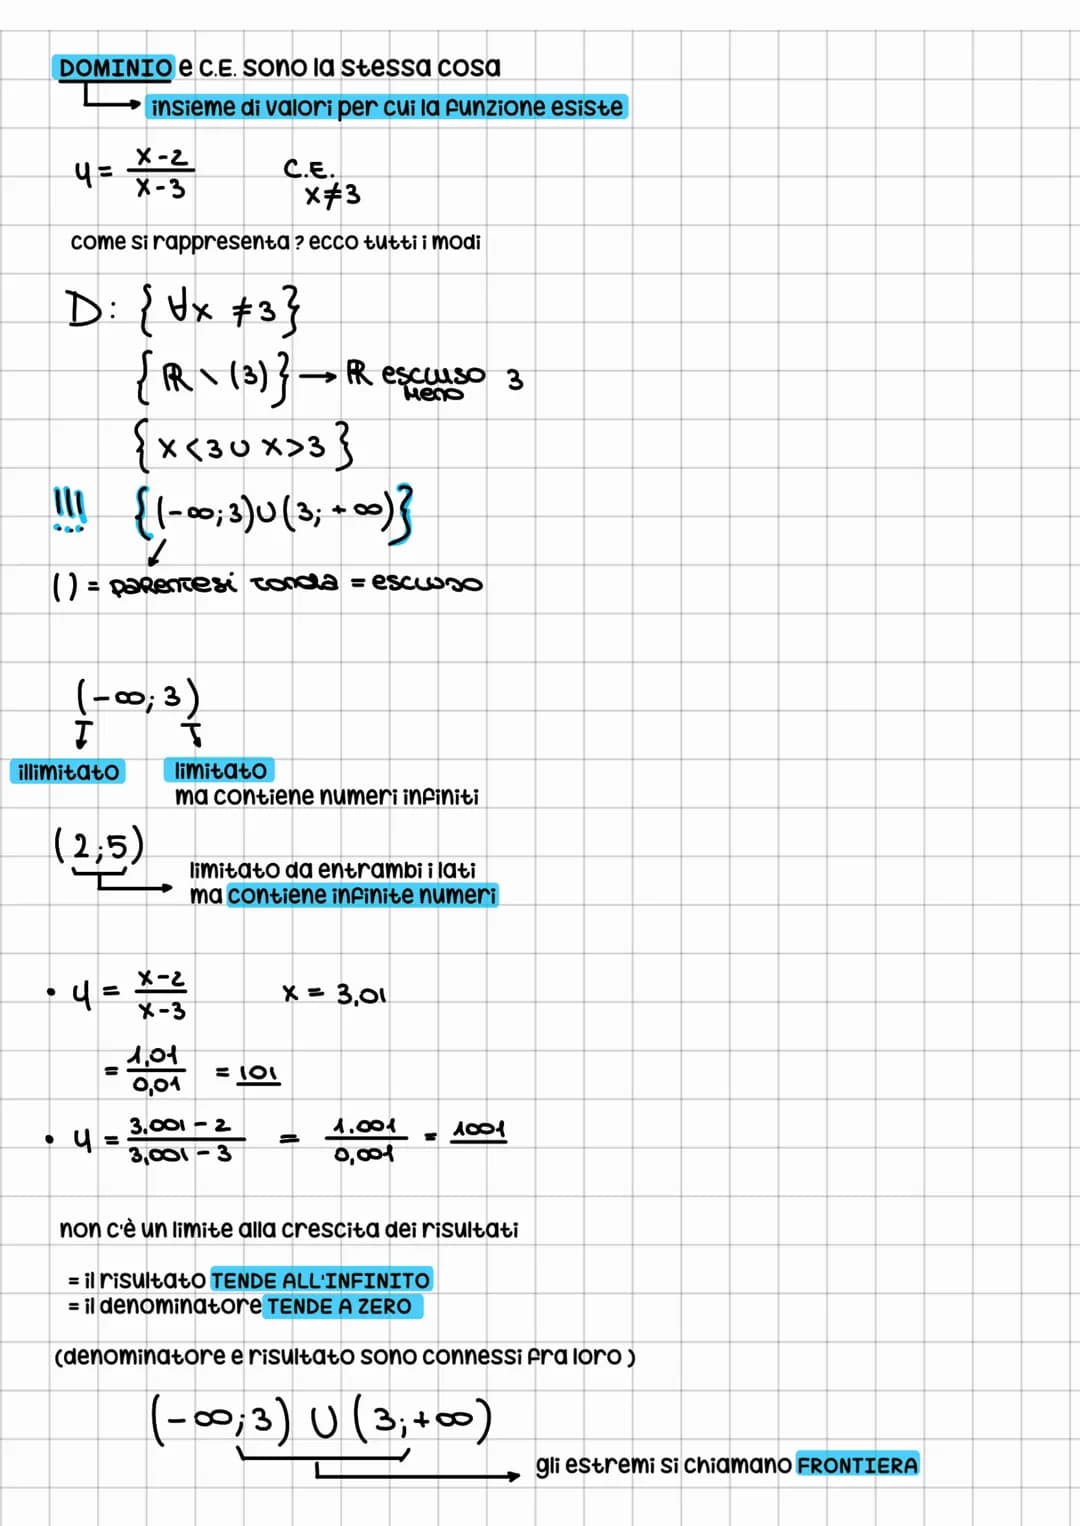 DOMINIO e C.E. sono la stessa cosa
insieme di valori per cui la funzione esiste
y = x-2 / x-3 C.E. x≠3
come si rappresenta? ecco tutti i modi
D: {∀x ≠3}
{ℝ \ (3)} → ℝ escluso 3
meno
{x<3 ∪ x>3}
!!! {(-∞;3)∪(3;+∞)}
() = parentesi tonda = escluso
(-∞;3)
illimitato limitato
ma contiene numeri infiniti
(2;5)
limitato da entrambi i lati
ma contiene infinite numeri
• y = x-2 / x-3 x = 3,01
= 1,01 / 0,01 = 101
• y = 3.001-2 / 3,001-3 = 1.001 / 0,001 = 1001
non c'è un limite alla crescita dei risultati
= il risultato TENDE ALL'INFINITO
= il denominatore TENDE A ZERO
(denominatore e risultato sono connessi fra loro)
(-∞;3) ∪ (3;+∞)
gli estremi si chiamano FRONTIERA